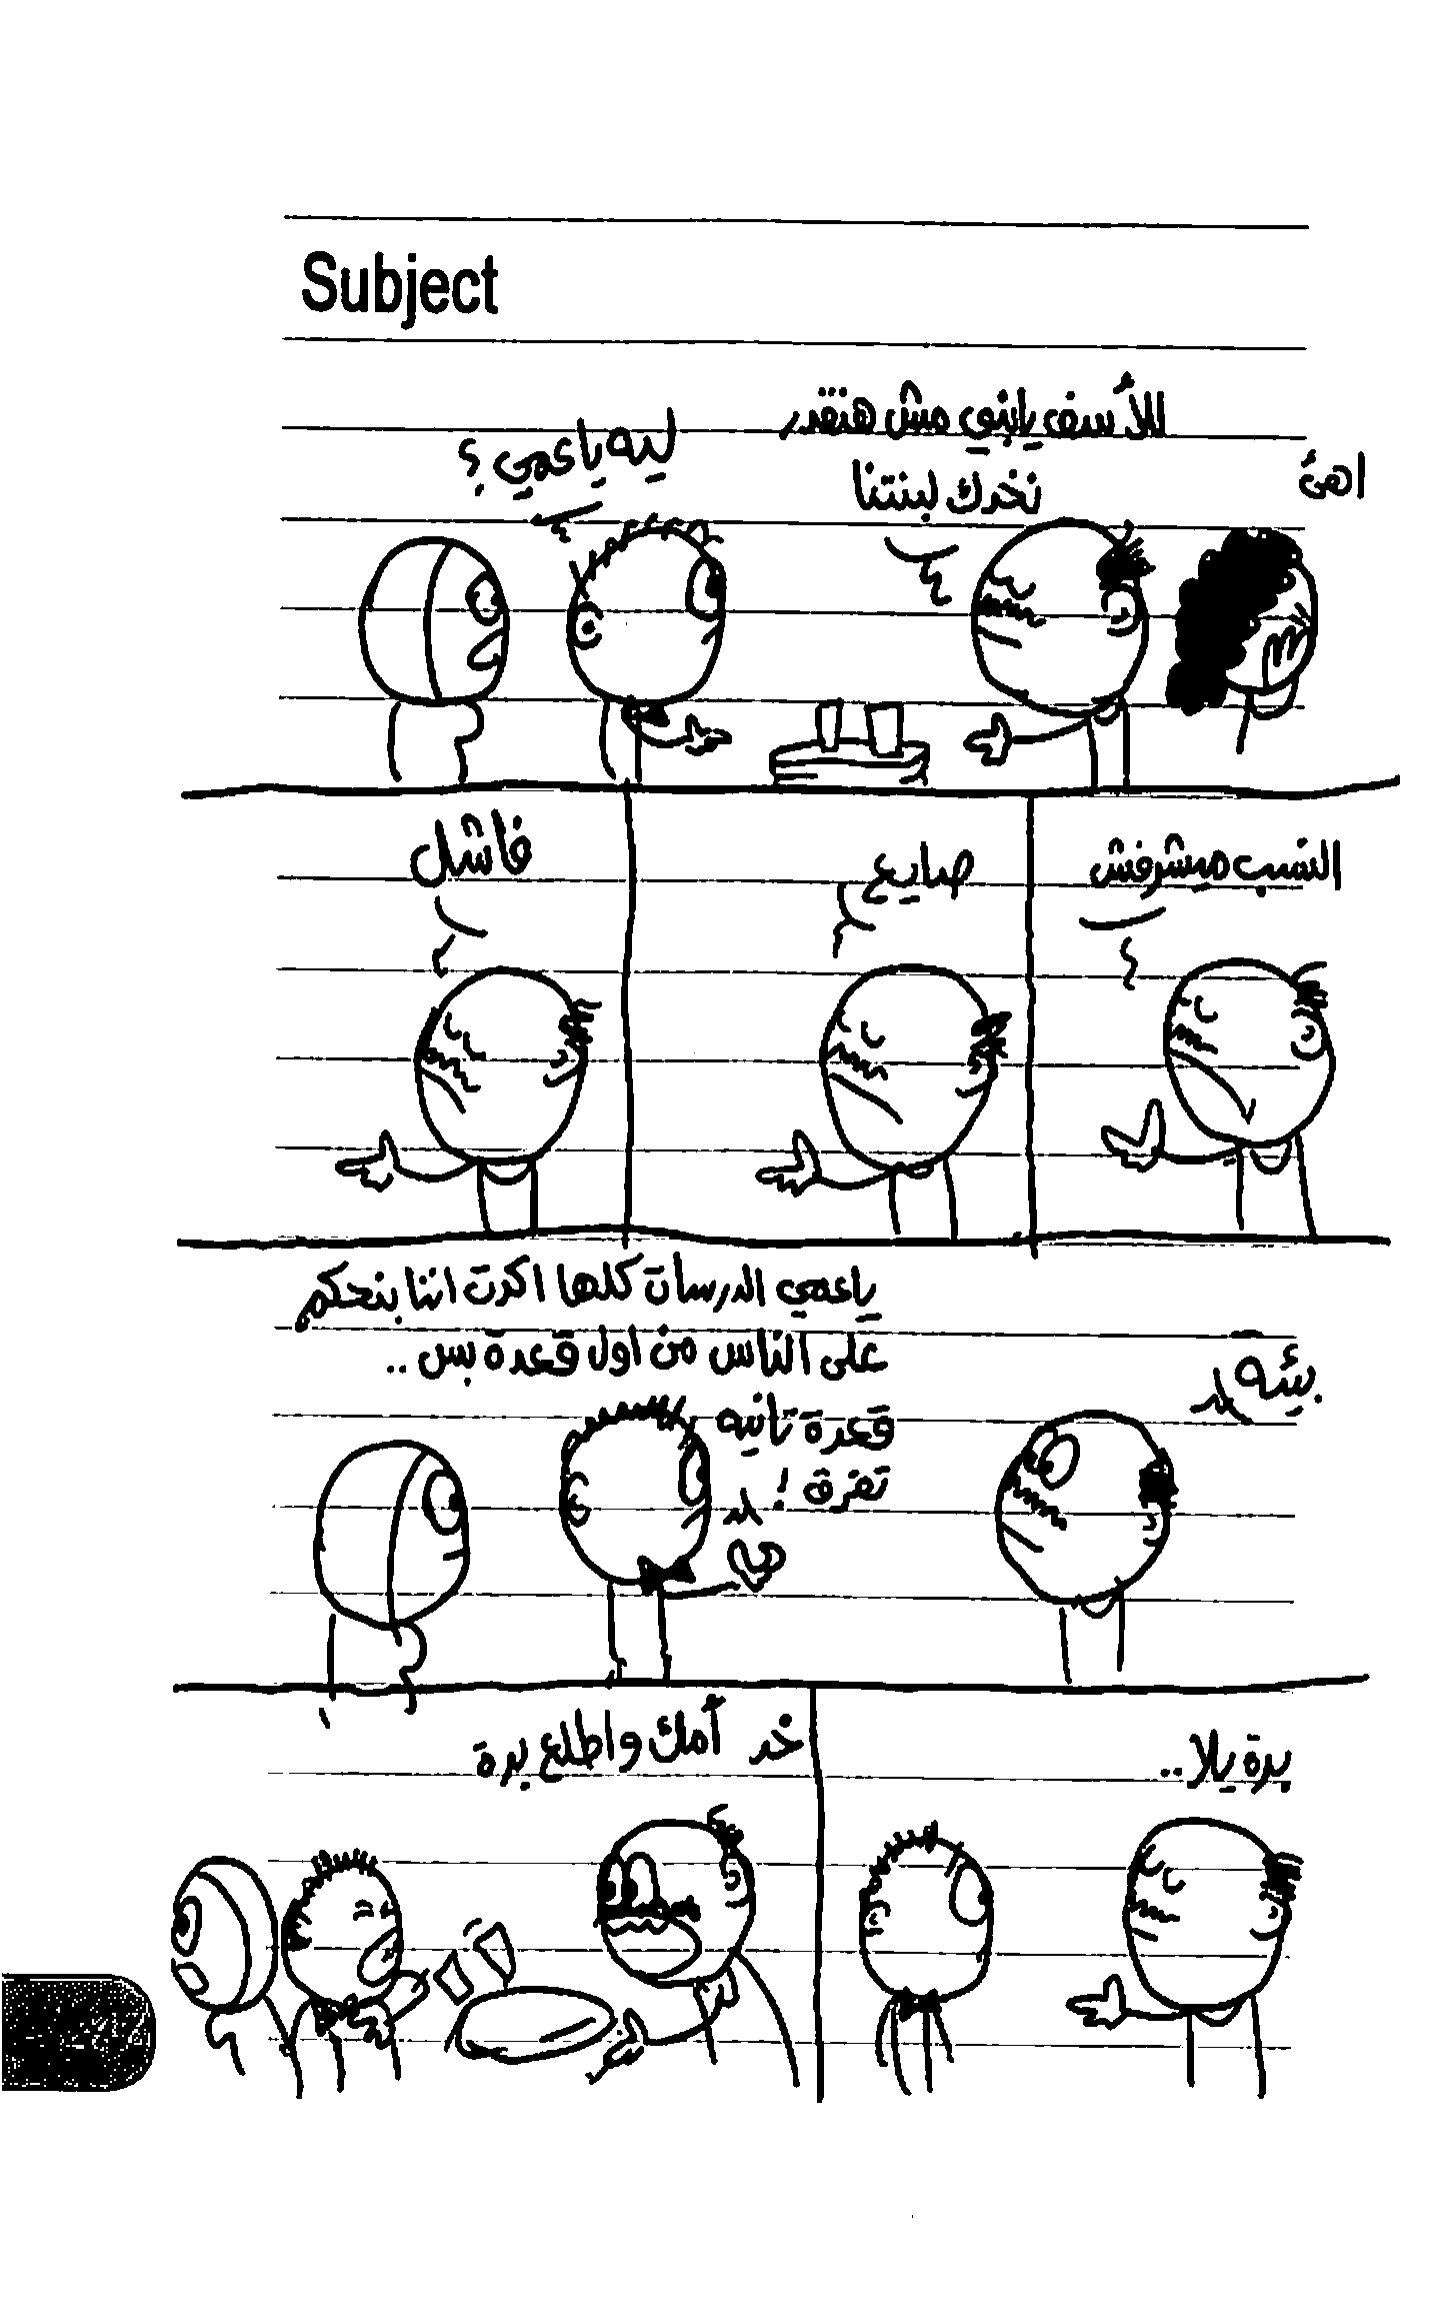 Subject
اهئ
للأسف يابني مش هنقدر
نخدك لبنتنا
ليه ياعمي؟
النسب ميشرفش
صايع
فاشل
ياعمي الدرسات كلها اكدت اننا بنحكم
على الناس من اول قعدة بس..
قعدة تانيه
تفرق!
بيئه
برة يلا..
خد أمك واطلع برة